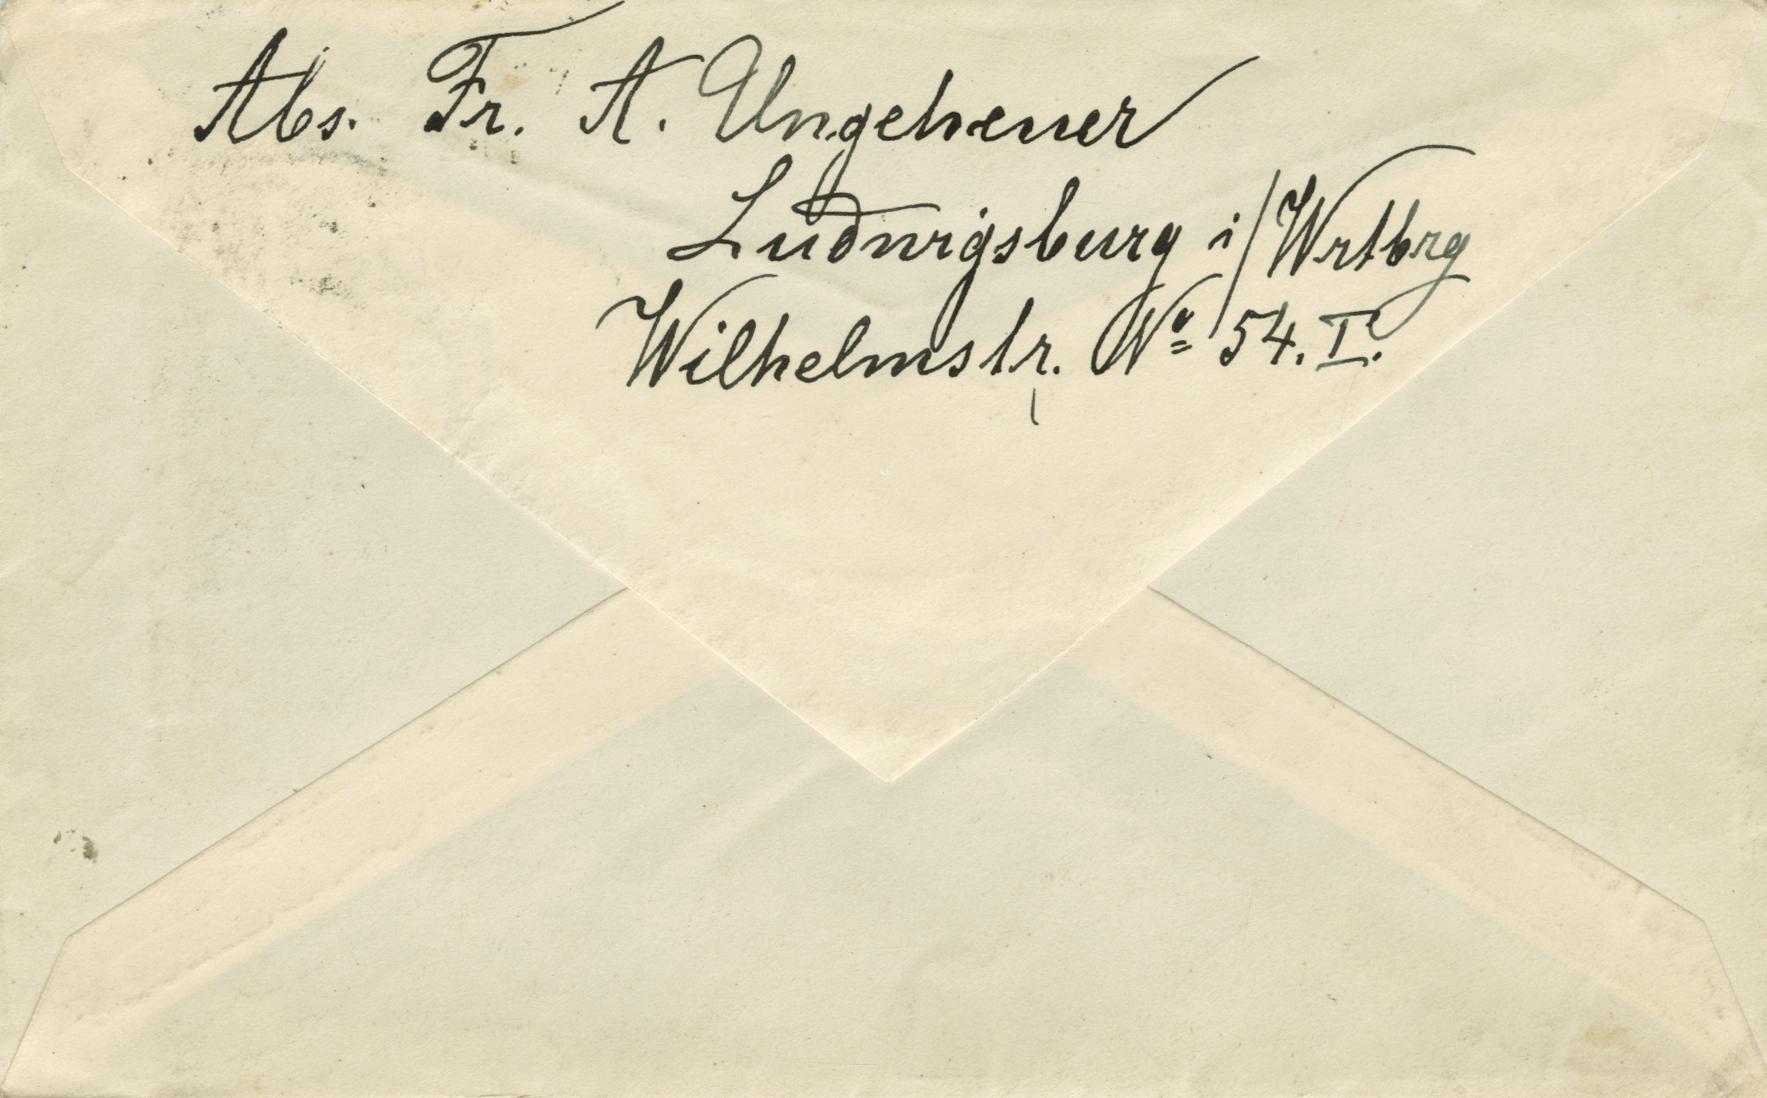 Abs. Fr. A. Ungeheuer
Ludwigsburg i/Wrtbrg
Wilhelmstr. № 54. I.